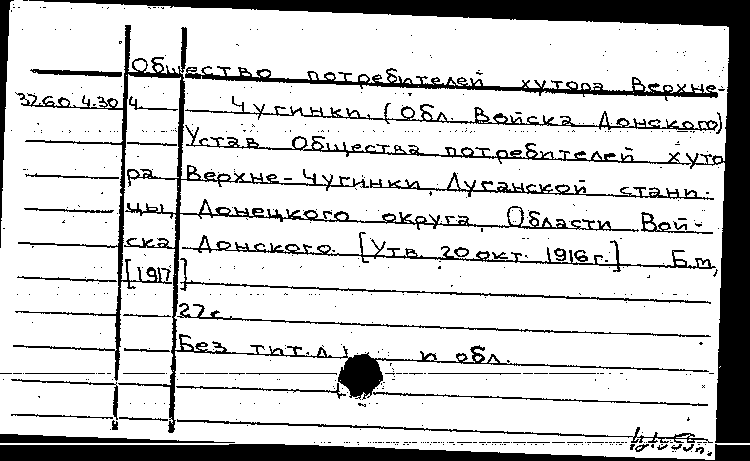 Общество потребителей хутора Верхне-
37.60.4.304. Чугинки. (Обл. Войска Донского)
Устав Общества потребителей хуто
ра Верхне-Чугинки, Луганской стани-
цы, Донецкого округа, Области Вой-
ска Донского. [Утв. 20 окт. 1916 г.] Б.м.,
[1917]
27 с.
Без тит. л. и обл.